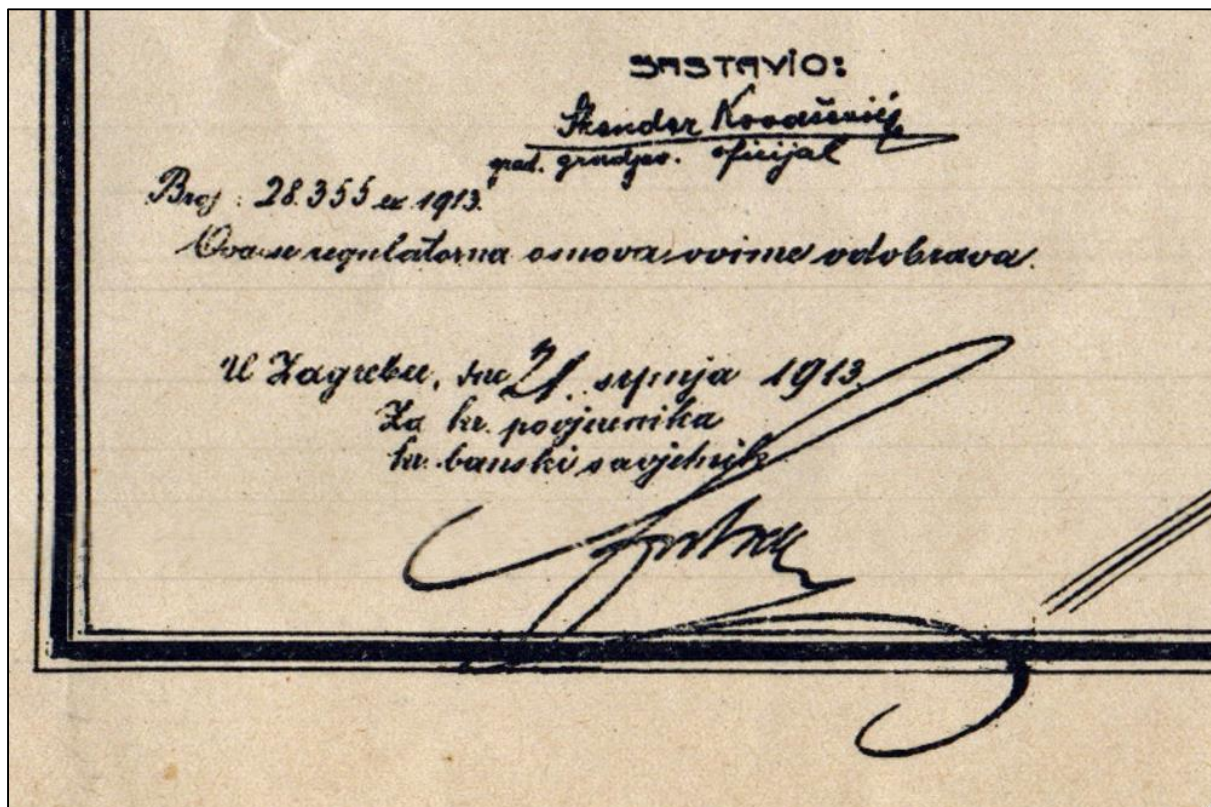 SASTAVIO:
Skender Kovačević
grad. gradjev. oficijal
Broj: 28.355 ex 1913.
Ova se regulatorna osnova ovime odobrava.
U Zagrebu, dne 21. srpnja 1913.
Za kr. povjerenika
kr. banski savjetnik